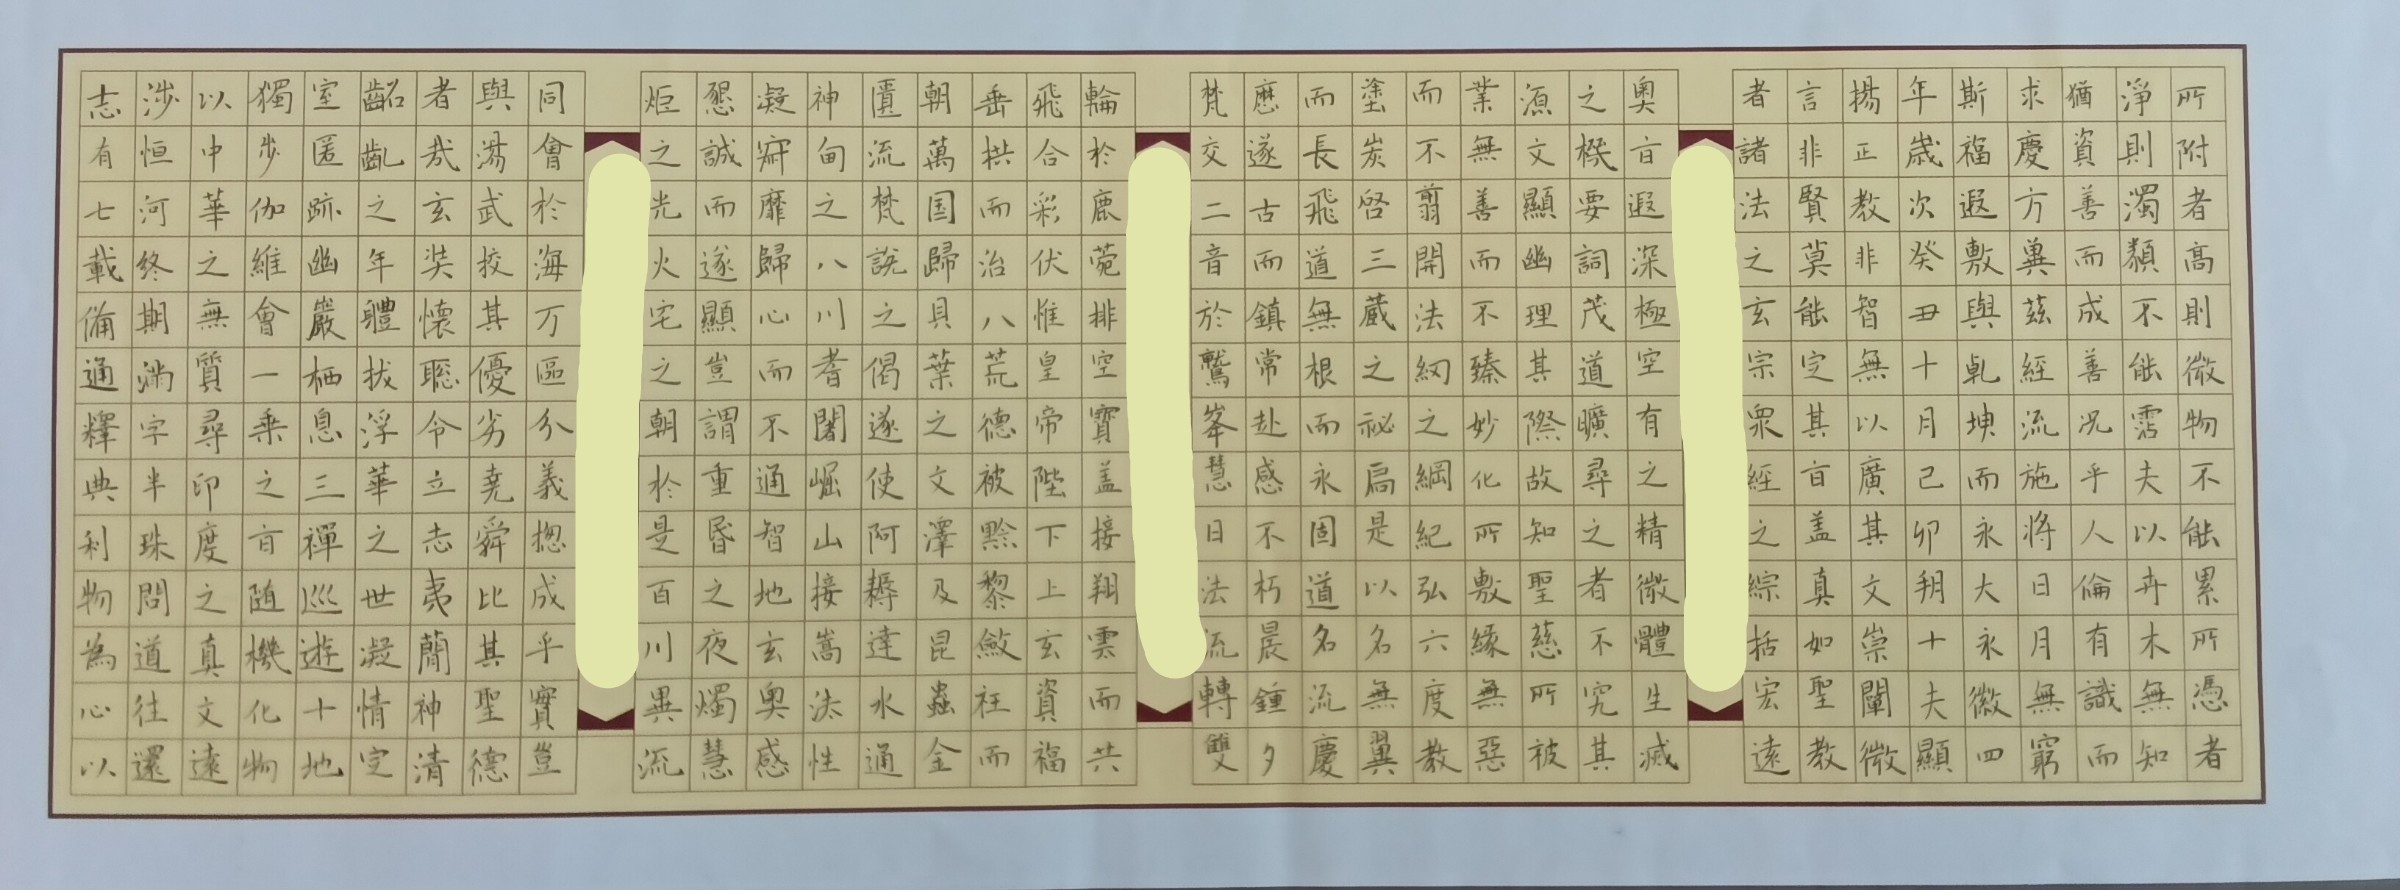 所附者高則微物不能累所憑者
淨則濁類不能霑夫以卉木無知
猶資善而成善况乎人倫有識而
求慶方冀茲經流施将日月無窮
斯福遐敷與乹坤而永大永徽四
年歲次癸丑十月己卯朔十夫顯
揚正教非智無以廣其文崇闡微
言非賢莫能定其㫖盖真如聖教
者諸法之玄宗衆經之綜括宏遠
奧㫖遐深極空有之精微體生滅
之機要詞茂道曠尋之者不究其
源文顯幽理其際故知聖慈所被
業無善而不臻妙化所敷緣無惡
而不翦開法網之綱紀弘六度教
塗炭啓三蔵之祕扃是以名無翼
而長飛道無根而永固道名流慶
應遂古而鎮常赴感不朽晨鍾夕
梵交二音於鷲峯慧日法流轉雙
輪於鹿菀排空寶盖接翔雲而共
飛合彩伏惟皇帝陛下上玄資福
垂拱而治八荒德被黔黎斂衽而
朝萬国歸貝葉之文澤及昆蟲金
匱流梵説之偈遂使阿耨達水通
神甸之八川耆闍崛山接嵩法性
凝寂靡歸心而不通智地玄奧感
懇誠而遂顯豈謂重昬之夜燭慧
炬之光火宅之朝於是百川異流
同會於海万區分義揔成乎實豈
與湯武挍其優劣堯舜比其聖德
者哉玄奘懷聡令立志夷簡神清
齠齔之年體拔浮華之世凝情定
室匿跡幽巖栖息三禪巡遊十地
獨步伽維會一乘之㫖随機化物
以中華之無質尋印度之真文遠
涉恒河終期滿字半珠問道往還
志有七載備通釋典利物為心以